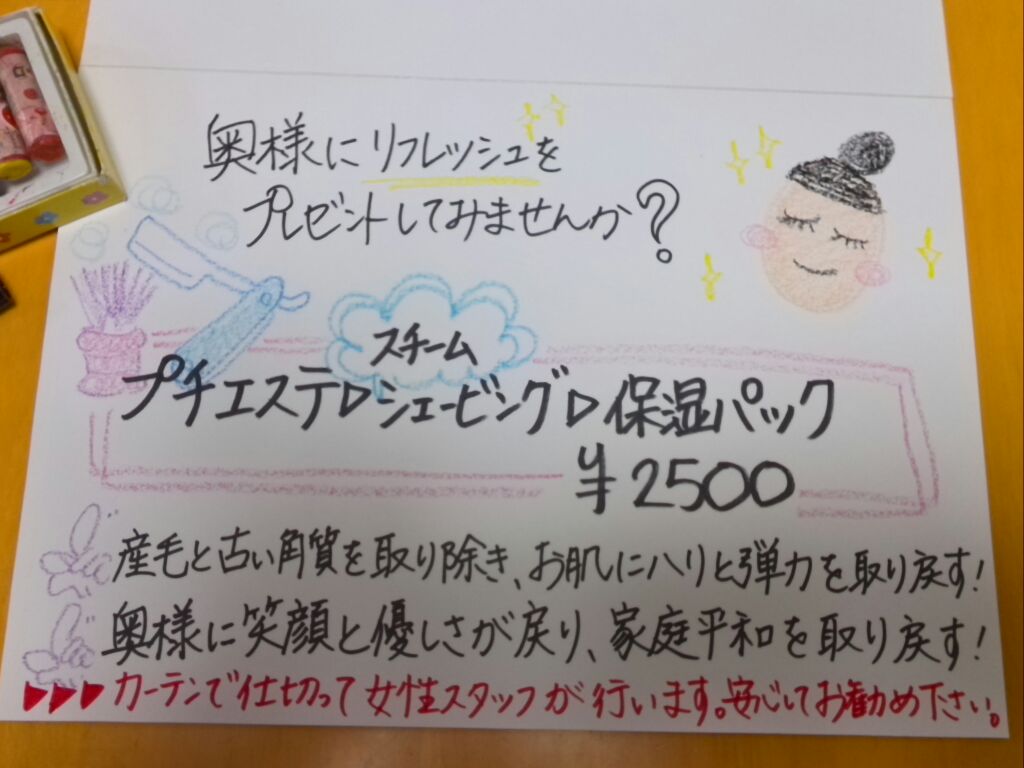 奥様にリフレッシュを
プレゼントしてみませんか?
スチーム
プチエステ▷シェービング▷保湿パック
¥2500
産毛と古い角質を取り除き、お肌にハリと弾力を取り戻す!
奥様に笑顔と優しさが戻り、家庭平和を取り戻す!
▶▶▶カーテンで仕切って女性スタッフが行います。安心してお勧め下さい。